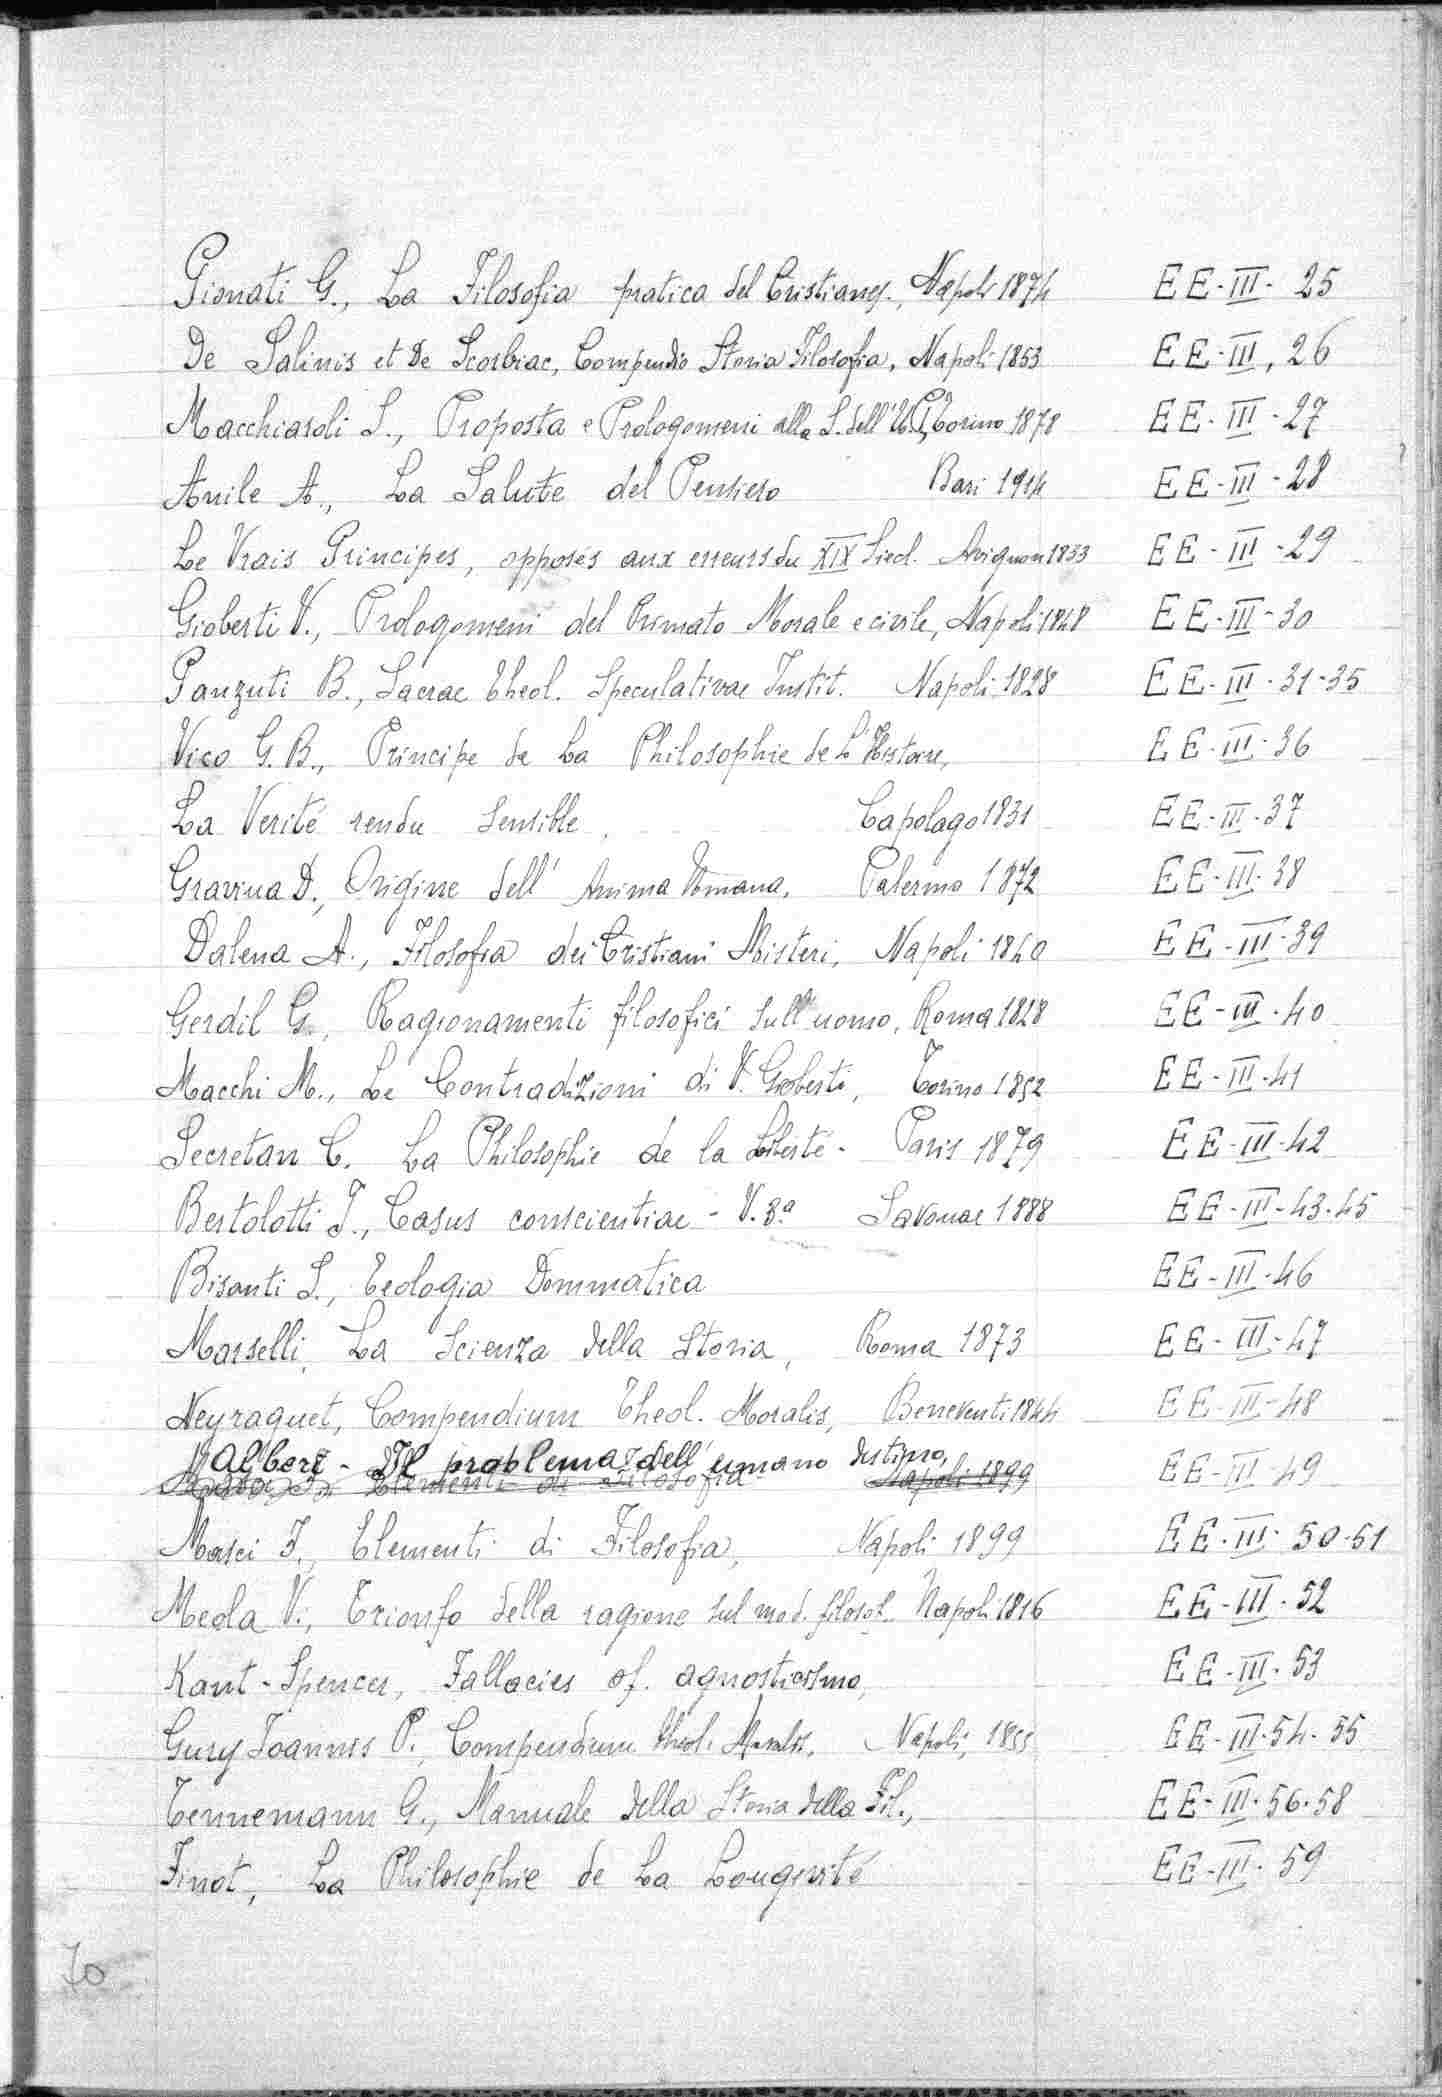 Pionati G., La Filosofia pratica del Cristianes., Napoli 1874 EE-III-25
De Salinis et De Scorbiac, Compendio Storia Filosofia, Napoli 1853 EE-III,26
Macchiaroli S., Proposta e Prologomeni alla S. dell' Torino 1878 EE-III-27
Anile A., La Salute del Pensiero Bari 1914 EE-III-28
Le Vrais Principes, opposés aux erreurs du XIX Siecl. Avignon 1833 EE-III-29
Gioberti V., Prologomeni del Primato Morale e civile, Napoli 1848 EE-III-30
Panzuti B., Sacrae Theol. Speculativae Instit. Napoli 1828 EE-III-31-35
Vico G. B., Principe de La Philosophie de L'Histoire, EE-III-36
La Verité rendu sensible, Capolago 1831 EE-III-37
Gravina D., Origine dell' Anima Umana, Palermo 1872 EE-III-38
Dalena A., Filosofia dei Cristiani Misteri, Napoli 1840 EE-III-39
Gerdil G., Ragionamenti filosofici sull'uomo, Roma 1828 EE-III-40
Macchi M., Le Contradizioni di V. Gioberti, Torino 1852 EE-III-41
Secretan C. La Philosophie de la Liberté - Paris 1879 EE-III-42
Bertolotti J., Casus conscientiae - V. 3ª Savonae 1888 EE-III-43-45
Bisanti L., Teologia Dommatica EE-III-46
Marselli, La Scienza della Storia, Roma 1873 EE-III-47
Neyraguet, Compendium Theol. Moralis, Beneventi 1844 EE-III-48
Aliberi - Il problema dell'umano destino, EE-III-49
Elementi di Filosofia Napoli 1899
Masci F., Elementi di Filosofia, Napoli 1899 EE-III-50-51
Meola V., Trionfo della ragione sul mod. filosof. Napoli 1816 EE-III-52
Kant-Spencer, Fallacies of. agnosticismo, EE-III-53
Gury Joannes P., Compendium theol. Moralis, Napoli, 1855 EE-III-54-55
Tennemann G., Manuale della Storia della Fil., EE-III-56-58
Finot, La Philosophie de La Longevité EE-III-59
70